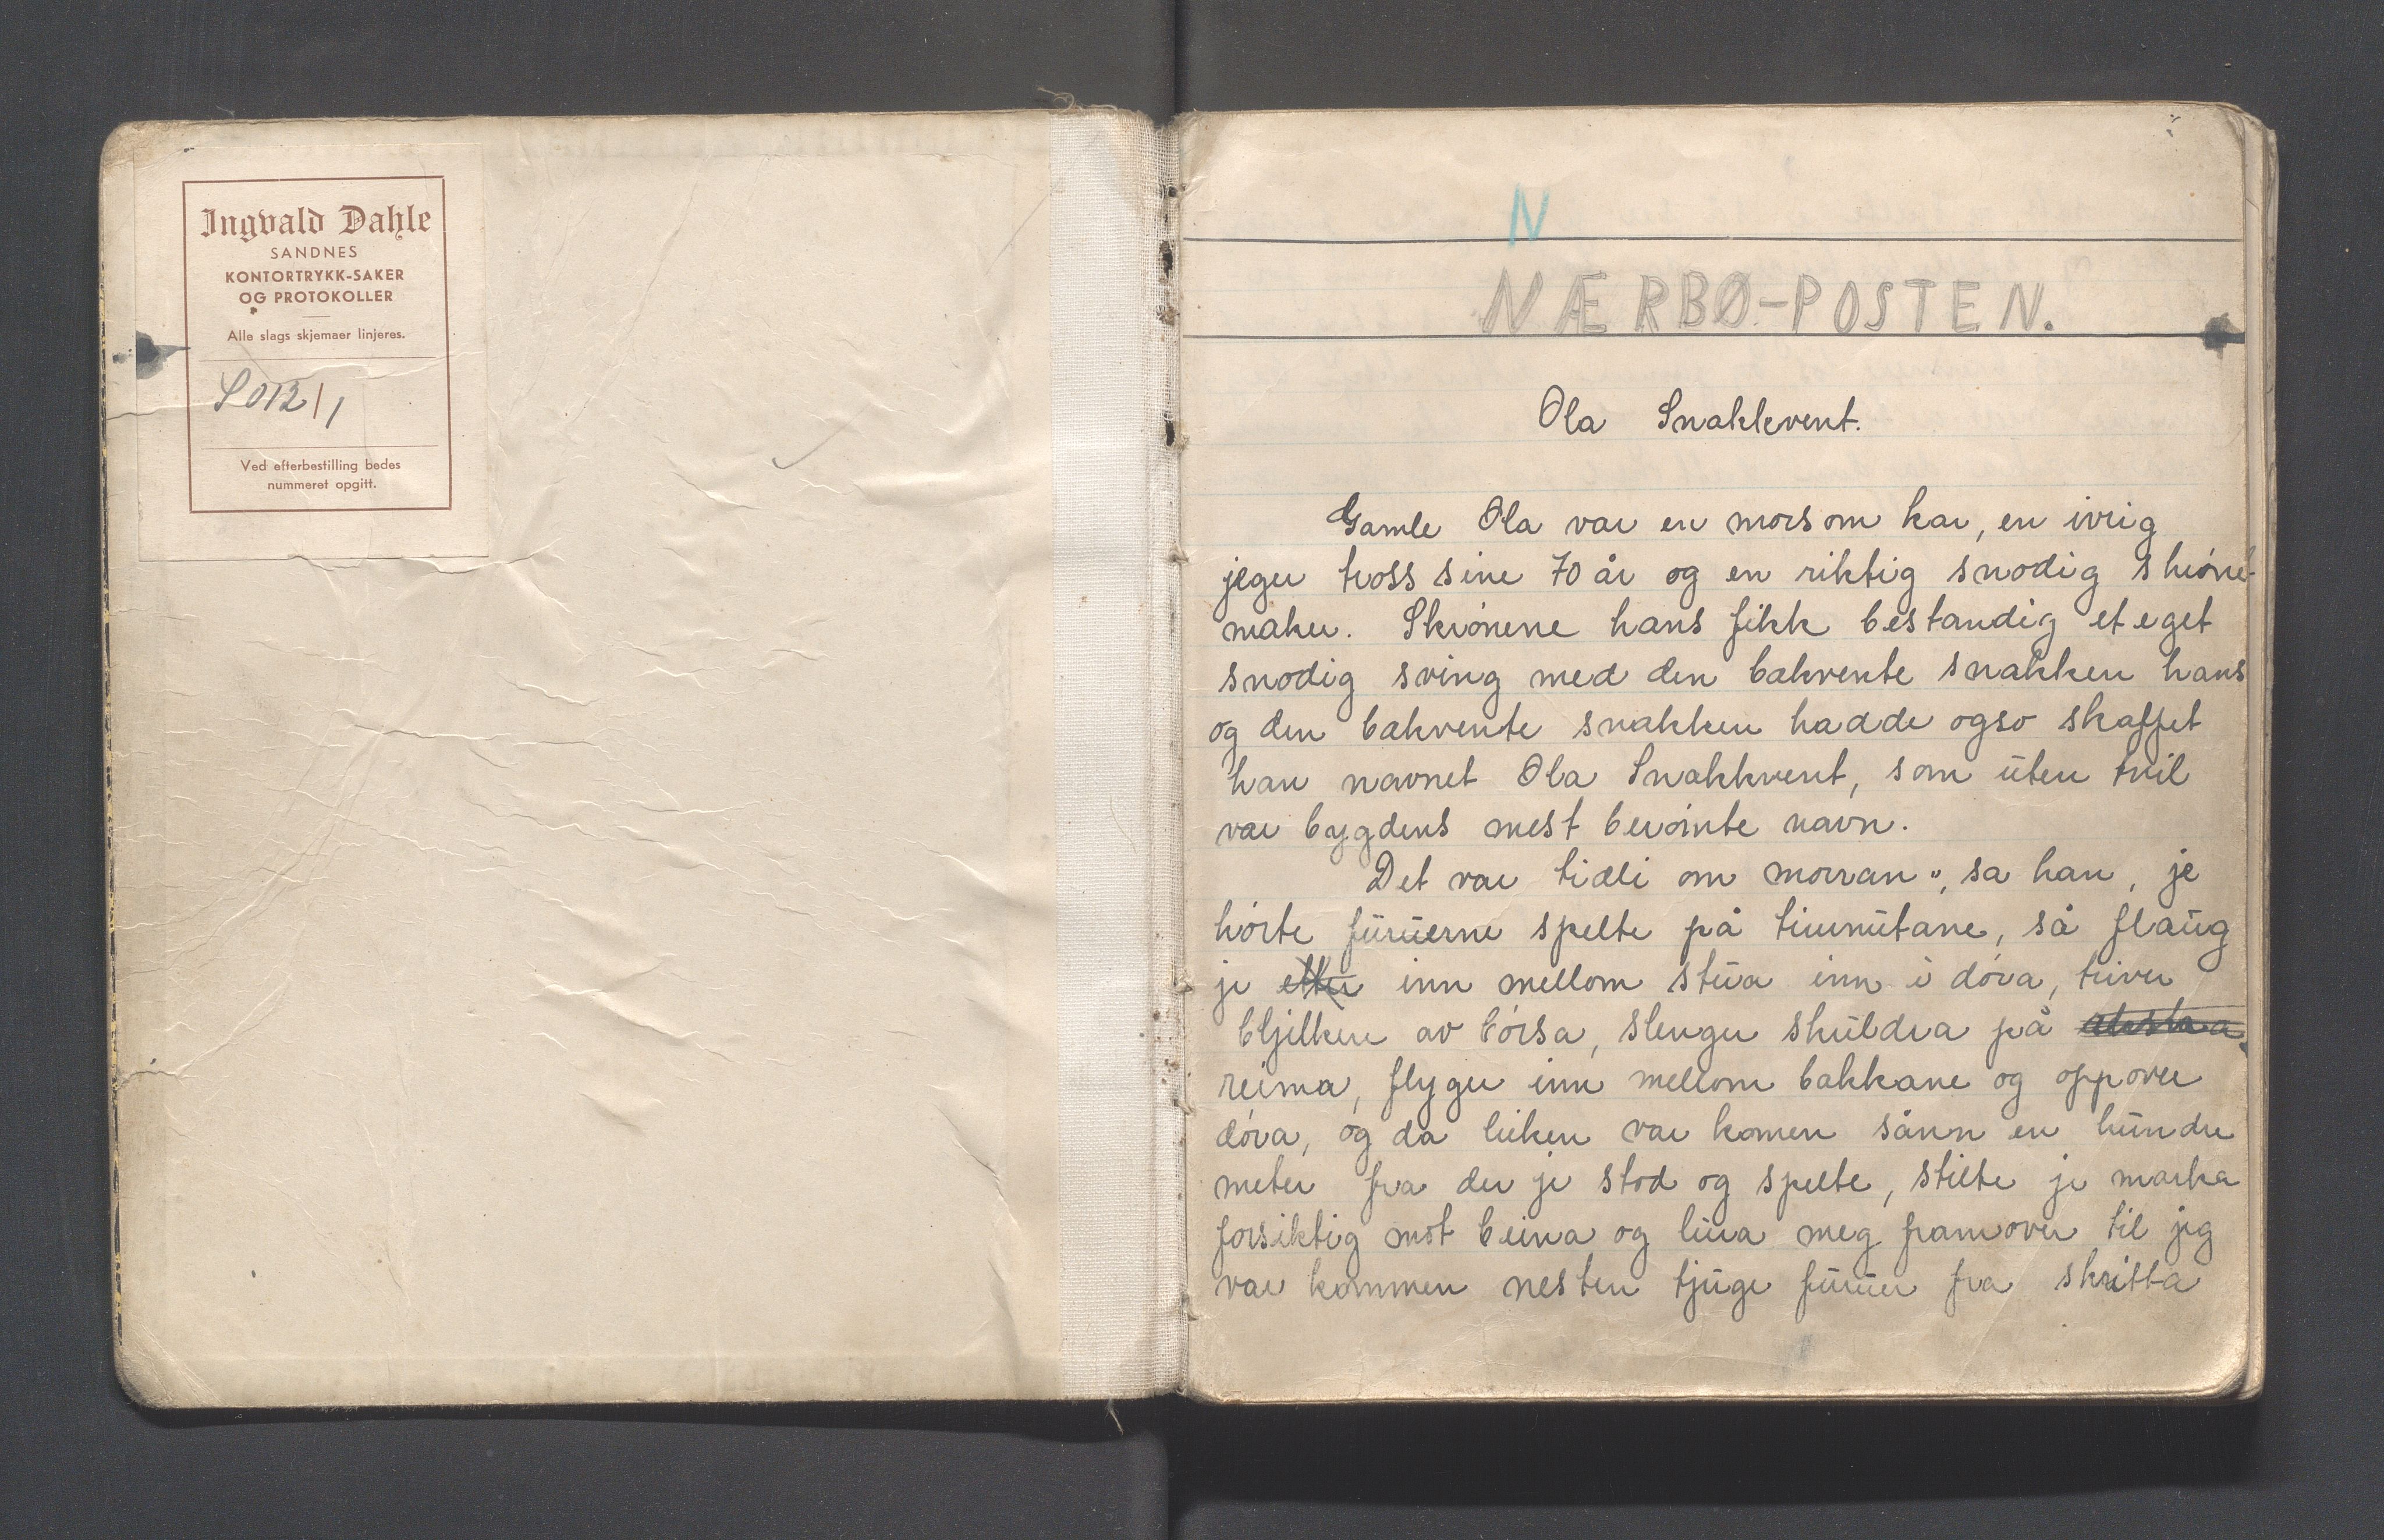 Ingvald Dahle
SANDNES
KONTORTRYKK-SAKER
OG PROTOKOLLER
Alle slags skjemaer linjeres.
S 012 | 1
Ved efterbestilling bedes
nummeret opgitt.
N
NÆRBØ-POSTEN.
Ola Snakkvent.
Gamle Ola var en morsom kar, en ivrig
jeger tross sine 70 år og en riktig snodig skrøne-
maker. Skrønene hans fikk bestandig et eget
snodig sving med den bakvente snakken hans
og den bakvente snakken hadde ogso skaffet
han navnet Ola Snakkvent, som uten tvil
var bygdens mest berømte navn.
Det var tidli om morran", sa han, je
hørte furuerne spelte på tiurnutane, så flaug
je etter inn mellom stua inn i døra, triver
bljelken av børsa, slenger skuldra på
reima, flyger inn mellom bakkane og oppover
døra, og da leiken var komen sånn en hundre
meter fra der je stod og spelte, stilte je marka
forsiktig mot beina og lura meg framover til jeg
var kommen nesten tjuge furuer fra skritta